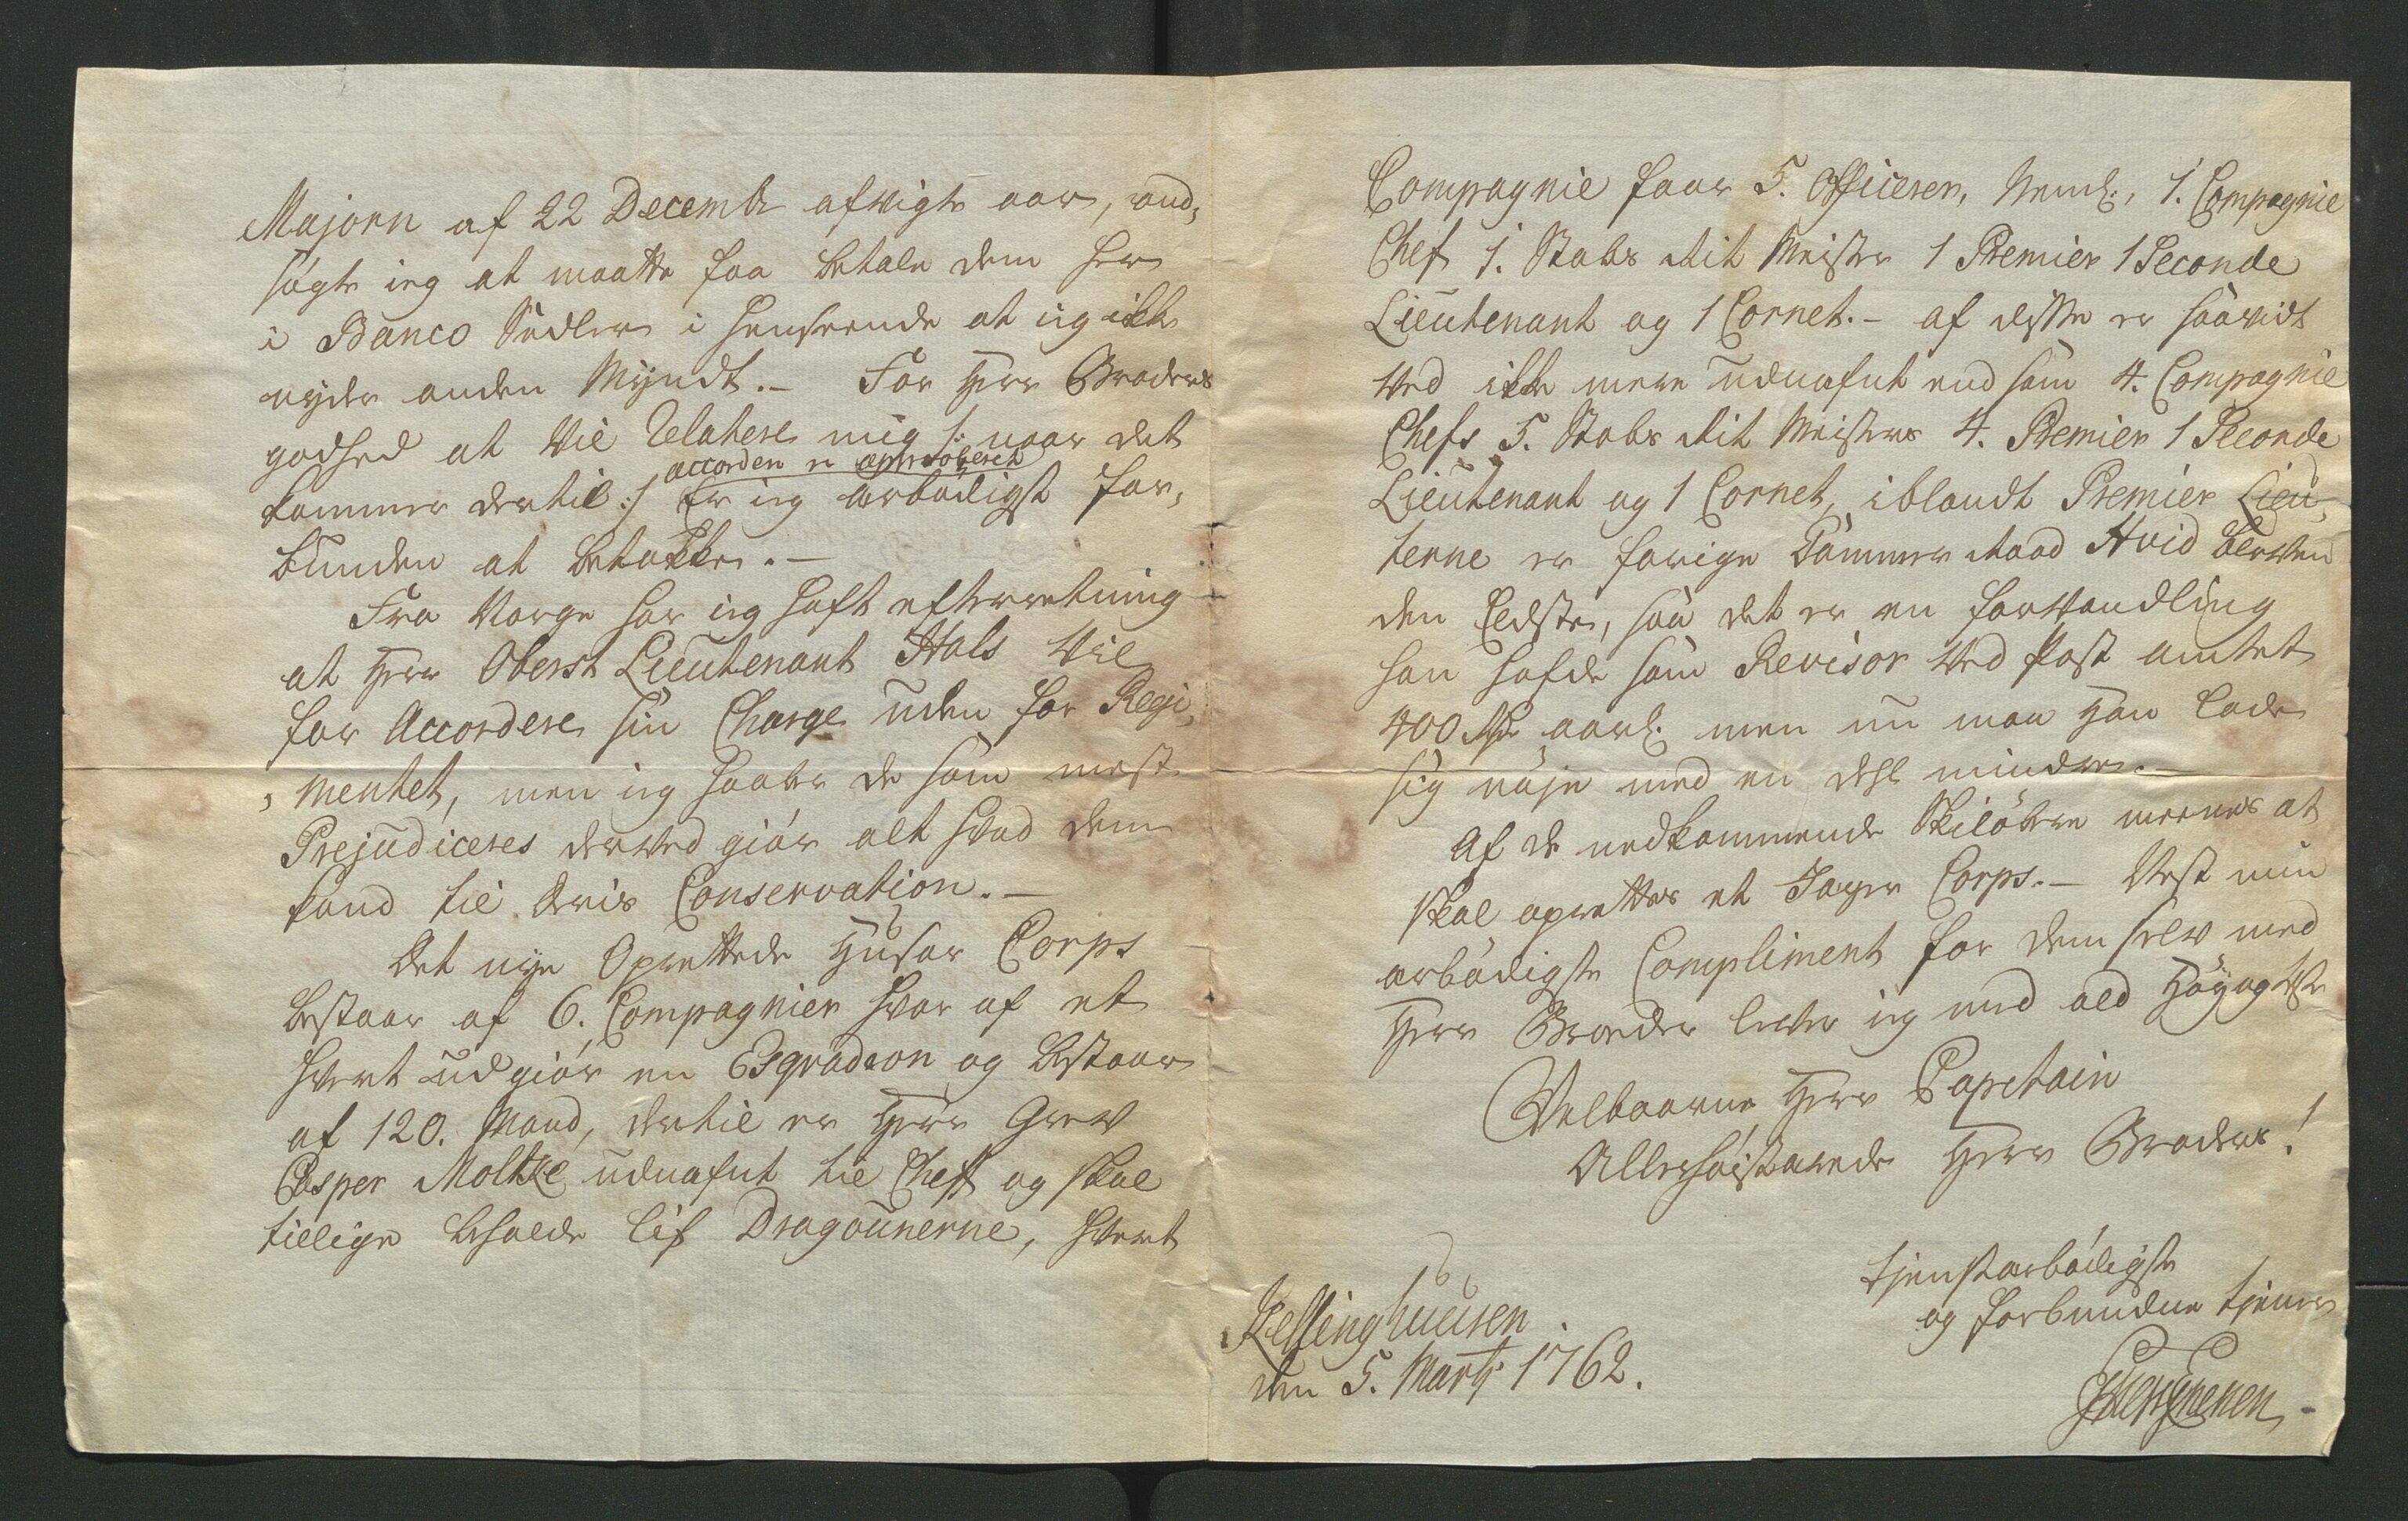 Majorn af 22 Decembr afvigte aar, and,
søgte ieg at maatte faa betale dem her
i Banco Sedler i henseende at ieg ikke
nyder anden Myndt.– For Herr Broders
godhed at vil relatere mig /: naar det
accorden er approberet
kommer dertil :/ Er ieg ærbødigst for,
bunden at betakke.–
Fra Norge har ieg haft efterretning
at Herr Oberst Lieutenant Hals vil
for Accordere sin Charge uden for Regi,
, mentet, men ieg haaber de som mest
Prejudiceres derved giør alt hvad dem
kand til deris Conservation.–
Det nye Oprettede Husar Corps
bestaar af 6. Compagnier hvor af et
hvert udgiør en Esqvadron og bestaar
af 120. Mand, dertil er Herr Grev
Casper Moltke udnefnt til Cheff og skal
tillige beholde lif Dragounerne, hvert
Compagnie faar 5. Officerer, Neml. 1. Compagnie
Chef 1. Stabs Rit Mester 1 Premier 1 Seconde
Lieutenant og 1 Cornet.– af disse er saavidt
ved ikke mere udnefnt end som 4. Compagnie
Chefs 5. Stabs Rit Mesters 4. Premier 1 Seconde
Lieutenant og 1 Cornet, iblandt Premier Lieu,
terne er forige Kammer Raad Hvid bleven
den Eldste, saa det er en forvandling
han hafde som Revisor ved Post amtet
400 Rdr aarl. men nu maa Han lade
sig nøje med en dehl mindre.–
Af de nedkommende Skiløbere meenes at
skal oprettes et Jæger Corps.– Nest min
ærbødigste Compliment for dem selv med
Herr Broder lever ieg med ald Høyagtelse
Velbaarne Herr Capitain
Allerhøistærede Herr Broders!
tjenstærbødigste
og forbundne tjener
Kellinghusen
den 5. Martj 1762.